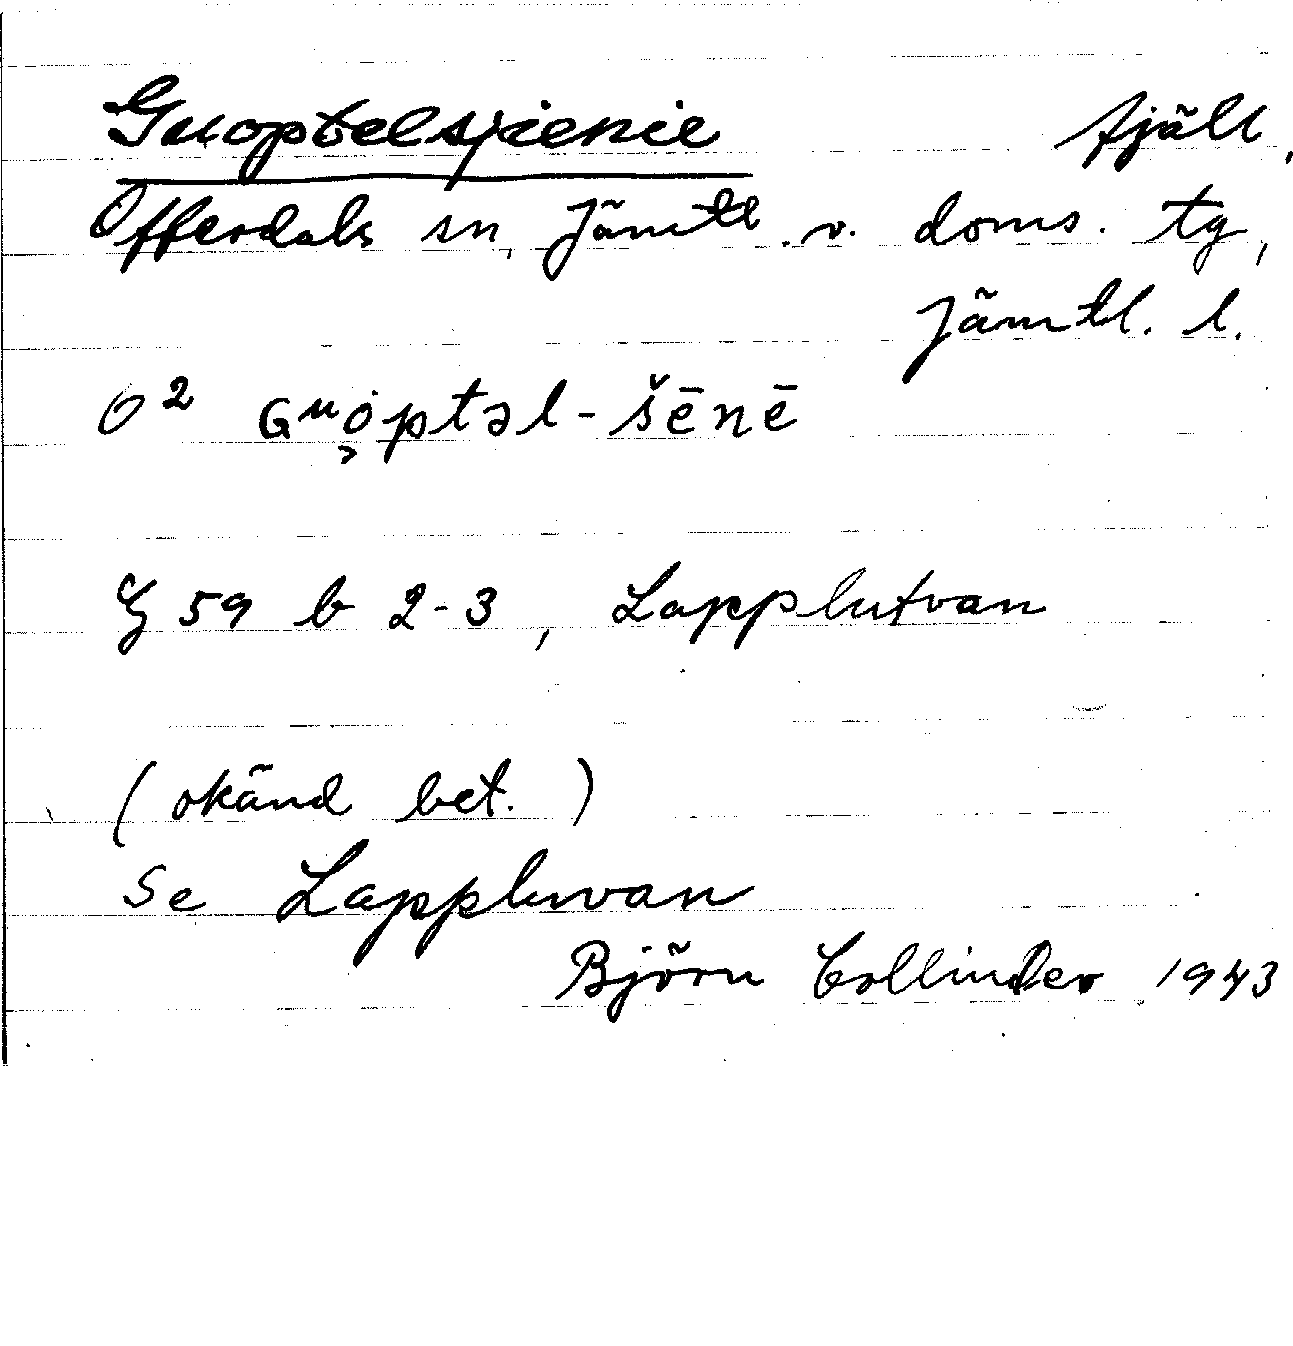 Guoptelsjienie fjäll,
Offerdals sn, Jämtl. v. doms. tg,
Jämtl. l.
O² Gᵘo̜ptəl-šēnē
G 59 b 2-3, Lapplutvan
(okänd bet.)
Se Lappluvan
Björn Collinder 1943